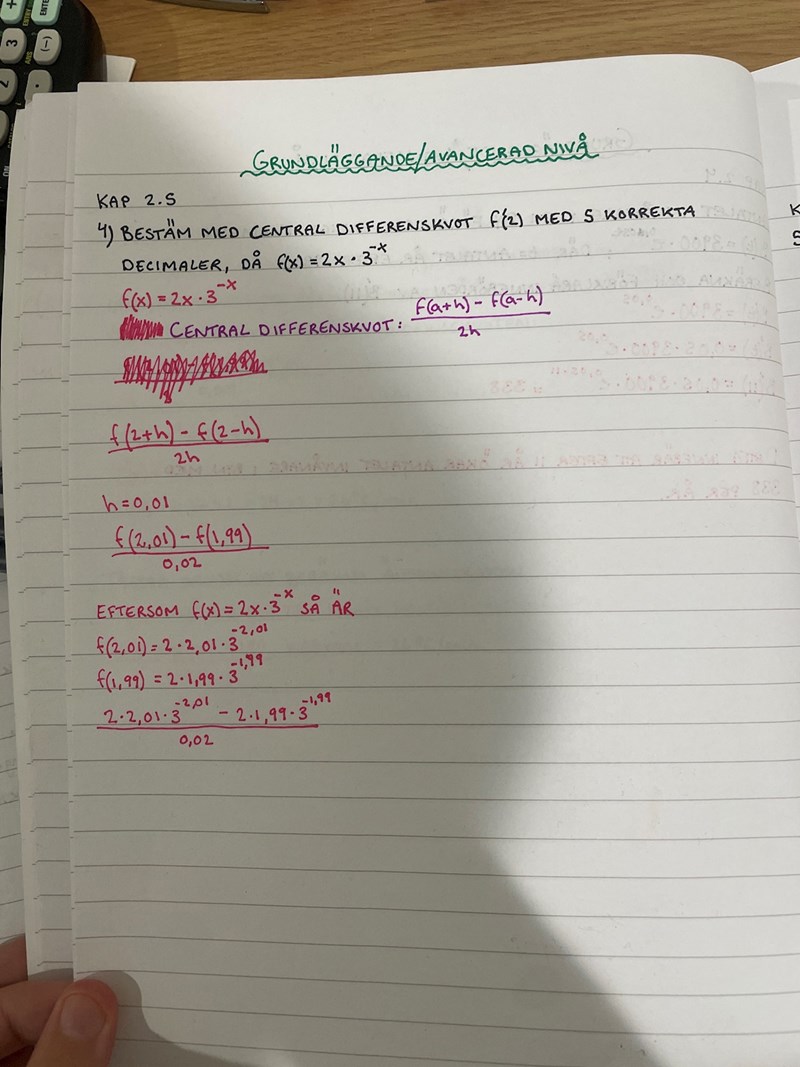 GRUNDLÄGGANDE/AVANCERAD NIVÅ
KAP 2.5
4) BESTÄM MED CENTRAL DIFFERENSKVOT f'(2) MED 5 KORREKTA
DECIMALER, DÅ f(x) = 2x · 3^-x
f(x) = 2x · 3^-x
CENTRAL DIFFERENSKVOT: f(a+h) - f(a-h)
2h
f(2+h) - f(2-h)
2h
h = 0,01
f(2,01) - f(1,99)
0,02
EFTERSOM f(x) = 2x · 3^-x SÅ ÄR
f(2,01) = 2 · 2,01 · 3^-2,01
f(1,99) = 2 · 1,99 · 3^-1,99
2 · 2,01 · 3^-2,01 - 2 · 1,99 · 3^-1,99
0,02